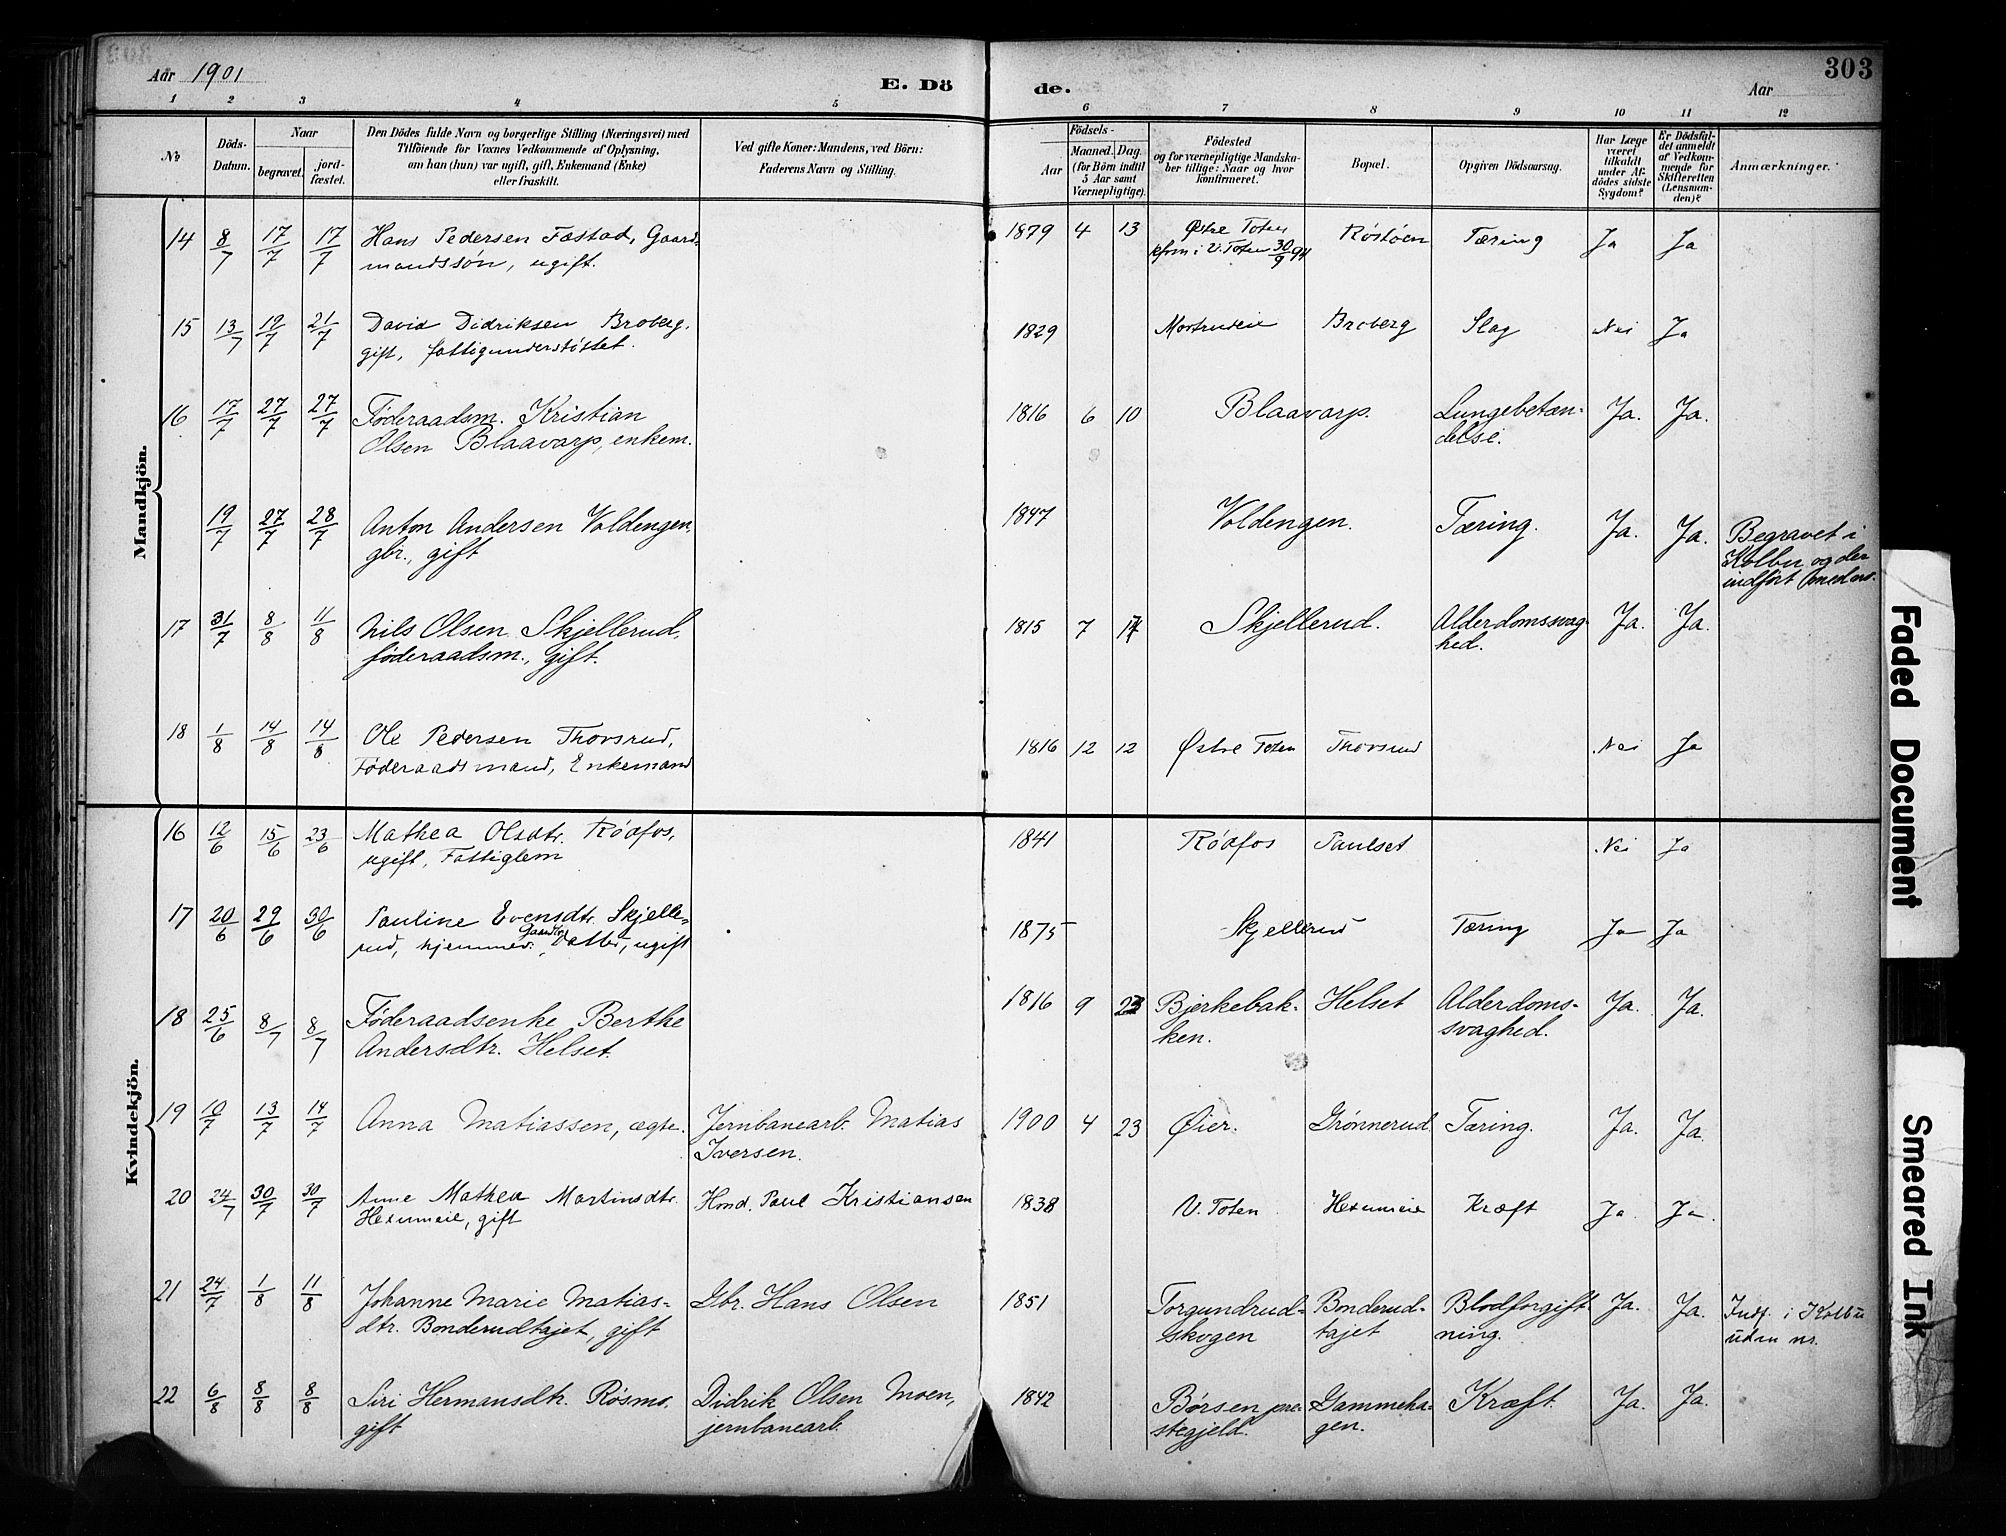 Aar 1901
E. Dö de.
Aar
303
1 2 3 4 5 6 7 8 9 10 11 12
No
Döds-Datum.
Naar
begravet.
jord-fæstet.
Den Dödes fulde Navn og borgerlige Stilling (Næringsvei) med
Tilföiende for Voxnes Vedkommende af Oplysning,
om han (hun) var ugift, gift, Enkemand (Enke)
eller fraskilt.
Ved gifte Koner: Mandens, ved Börn:
Faderens Navn og Stilling.
Födsels-
Aar
Maaned. Dag.
(for Börn indtil
5 Aar samt
Værnepligtige).
Födested
og for værnepligtige Mandska-
ber tillige: Naar og hvor
konfirmeret.
Bopæl.
Opgiven Dödsaarsag.
Har Læge
været
tilkaldt
under Af-
dödes sidste
Sygdom?
Er Dödsfal-
det anmeldt
af Vedkom-
mende for
Skifteretten
(Lensman-
den)?
Anmærkninger.
Mandkjön.
14 8/7 17/7 17/7 Hans Pedersen Fæstad, Gaard- 1879 4 13 Østre Toten Røstøen Tæring Ja Ja
mandssøn, ugift. kfrm i V. Toten 30/9 94
15 13/7 19/7 21/7 David Didriksen Broberg. 1829 Mostrudeie Broberg Slag Nei Ja
gift, fattigunderstøttet.
16 17/7 27/7 27/7 Føderaadsm. Kristian 1816 6 10 Blaavarp. Lungebetæn- Ja. Ja.
Olsen Blaavarp, enkem. delse.
19/7 27/7 28/7 Anton Andersen Voldengen, 1847 Voldengen. Tæring. Ja. Ja. Begravet i
gbr., gift Kolbu og der
indført
17 31/7 8/8 11/8 Nils Olsen Skjellerud, 1815 7 Skjellerud. Alderdomssvag- Ja. Ja.
føderaadsm., gift. hed.
18 1/8 14/8 14/8 Ole Pedersen Thorsrud, 1816 12 12 Østre Toten Thorsrud Nei Ja
Føderaadsmand, Enkemand
Kvindekjön.
16 12/6 15/6 23/6 Mathea Olsdtr. Rødfos, 1841 Rødfos Paulset Nei Ja
ugift, Fattiglem
17 20/6 29/6 30/6 Pauline Evensdtr. Skjelle- 1875 Skjellerud Tæring Ja Ja
rud, hjemmev. Datter, ugift
18 25/6 8/7 8/7 Føderaadsenke Berthe 1816 9 23 Bjerkebak- Helset Alderdoms- Ja. Ja.
Andersdtr. Helset. ken. svaghed.
19 10/7 13/7 14/7 Anna Matiassen, ægte. Jernbanearb. Matias 1900 4 23 Øier. Grønnerud. Tæring. Ja. Ja.
Iversen.
20 24/7 30/7 30/7 Anne Mathea Martinsdtr. Hmd. Paul Kristiansen 1838 V. Toten Hexumeie Kræft Ja. Ja.
Hexumeie, gift
21 24/7 1/8 11/8 Johanne Marie Matias- Gbr. Hans Olsen 1851 Torgundrud- Bonderud- Blodforgift- Ja. Ja. Indf. i Kolbu
dtr. Bonderudtajet, gift skogen tajet ning. uden nr.
22 6/8 8/8 8/8 Siri Hermansdtr. Røsmo, Didrik Olsen Moen, 1842 Børsen pre- Gammeha- Kræft. Ja. Ja.
gift jernbanearb. stegjeld. gen.
Faded Document
Smeared Ink